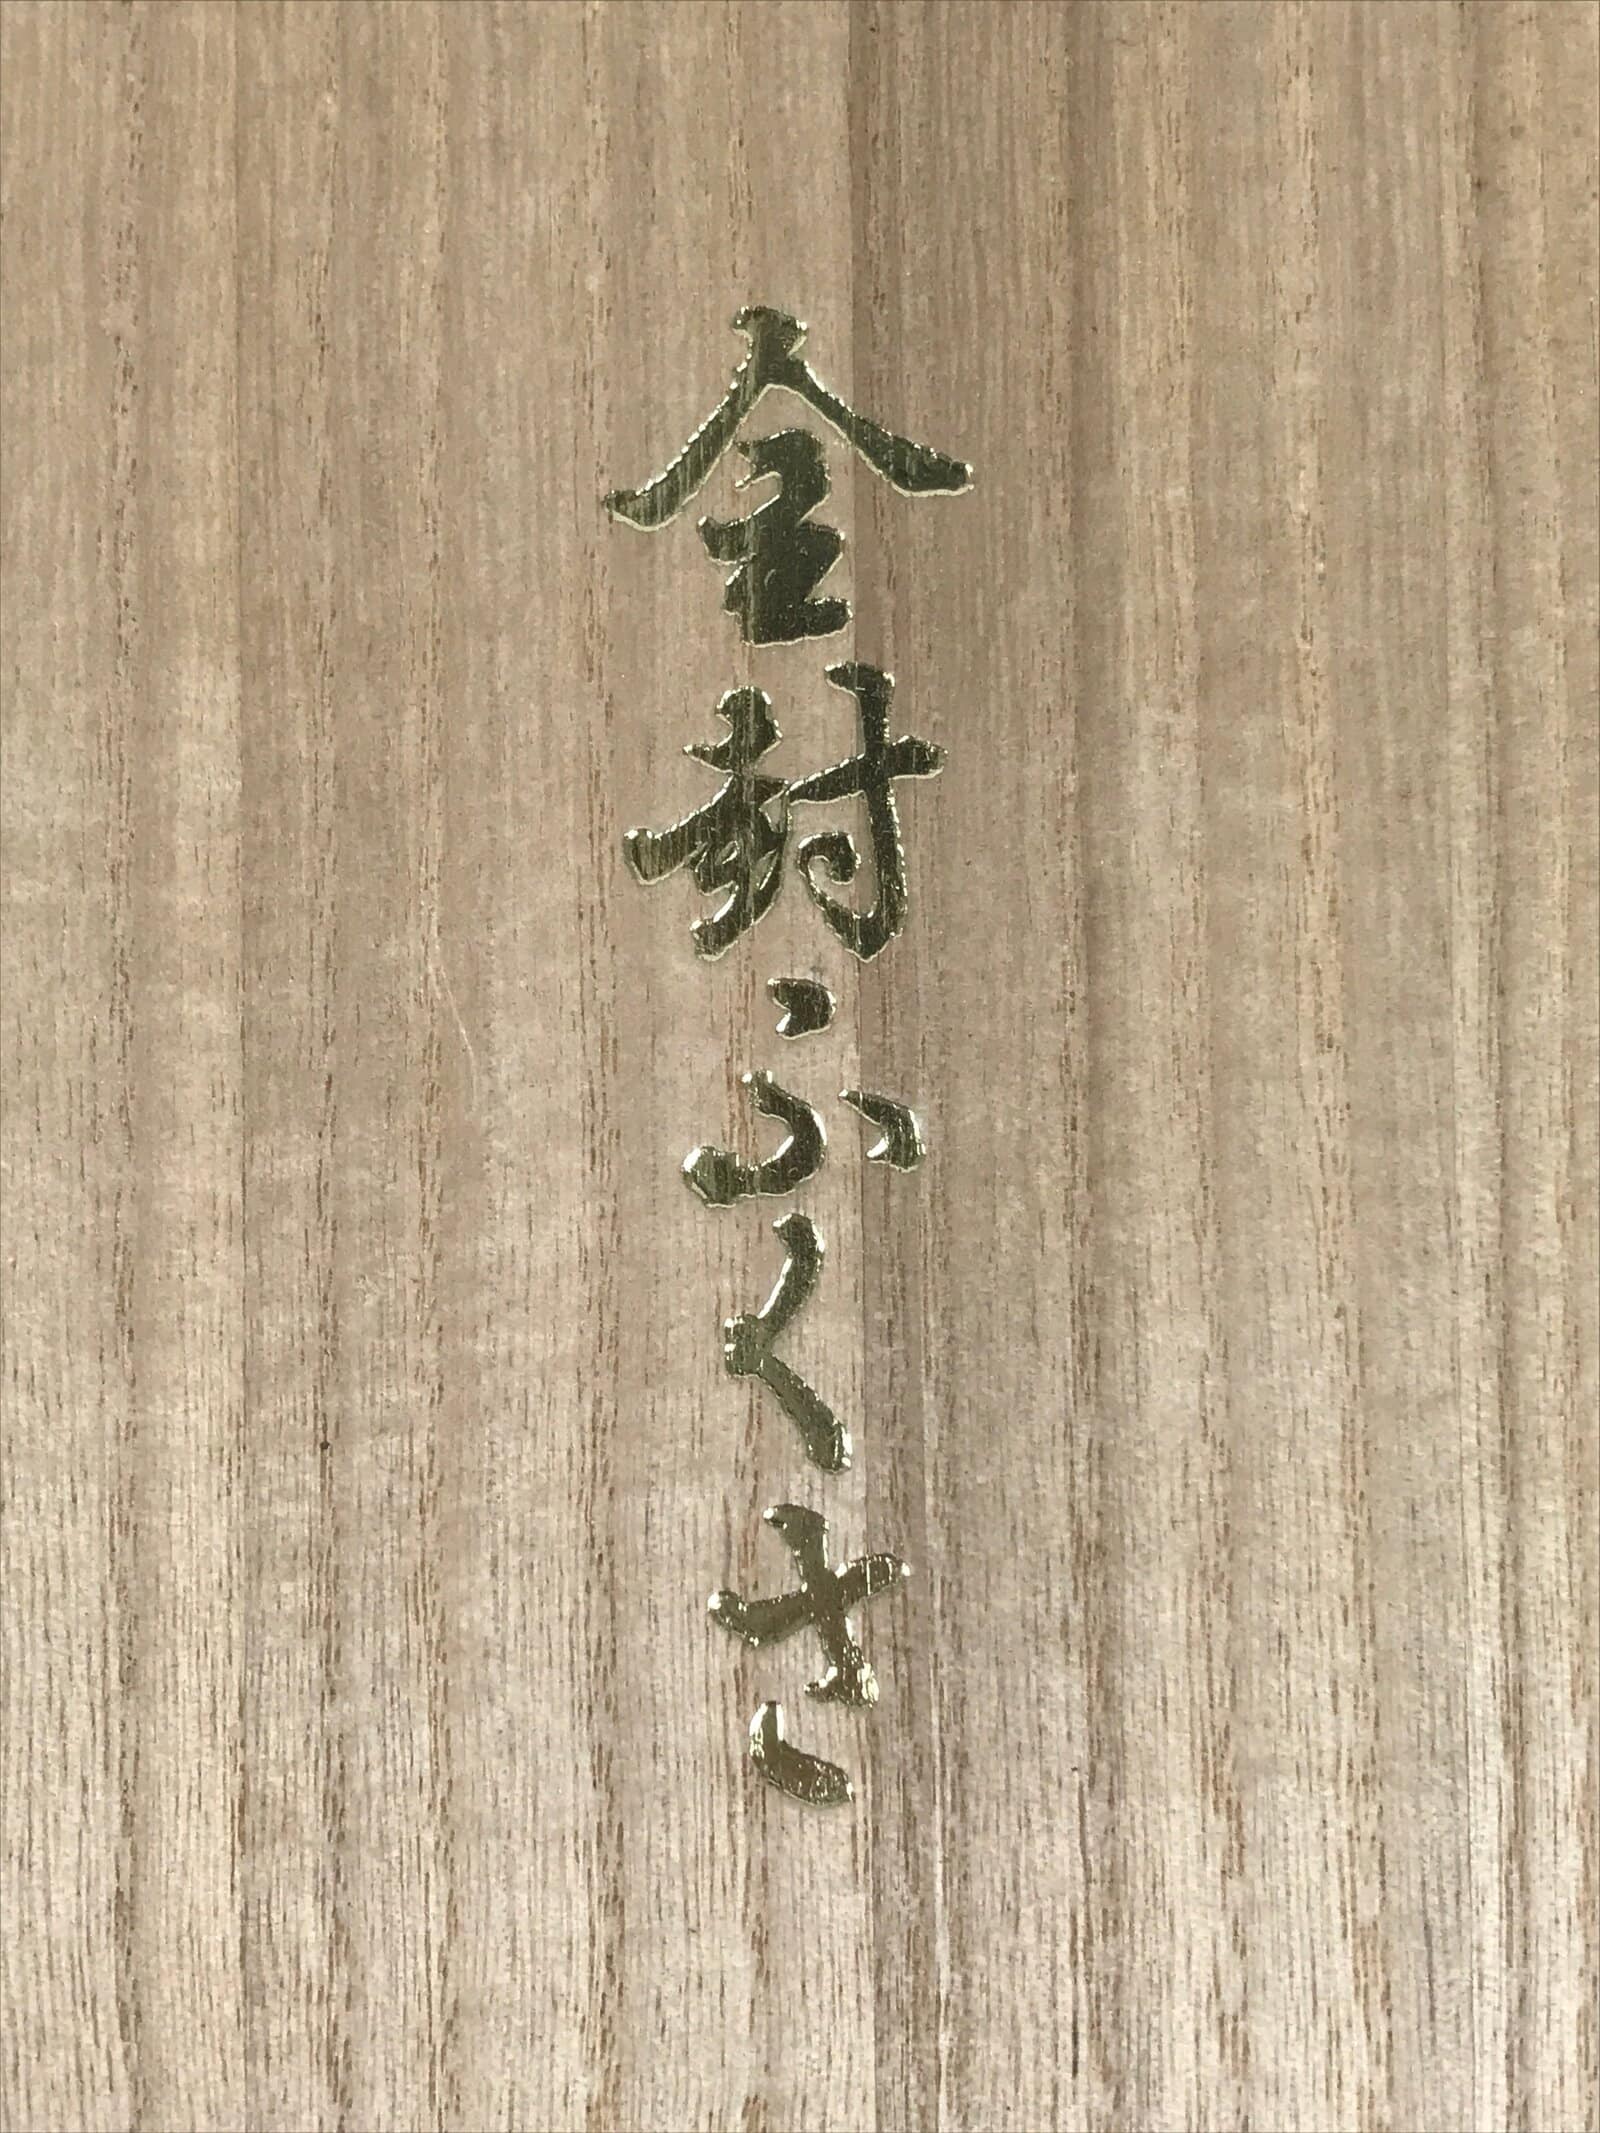 金封ふくさ